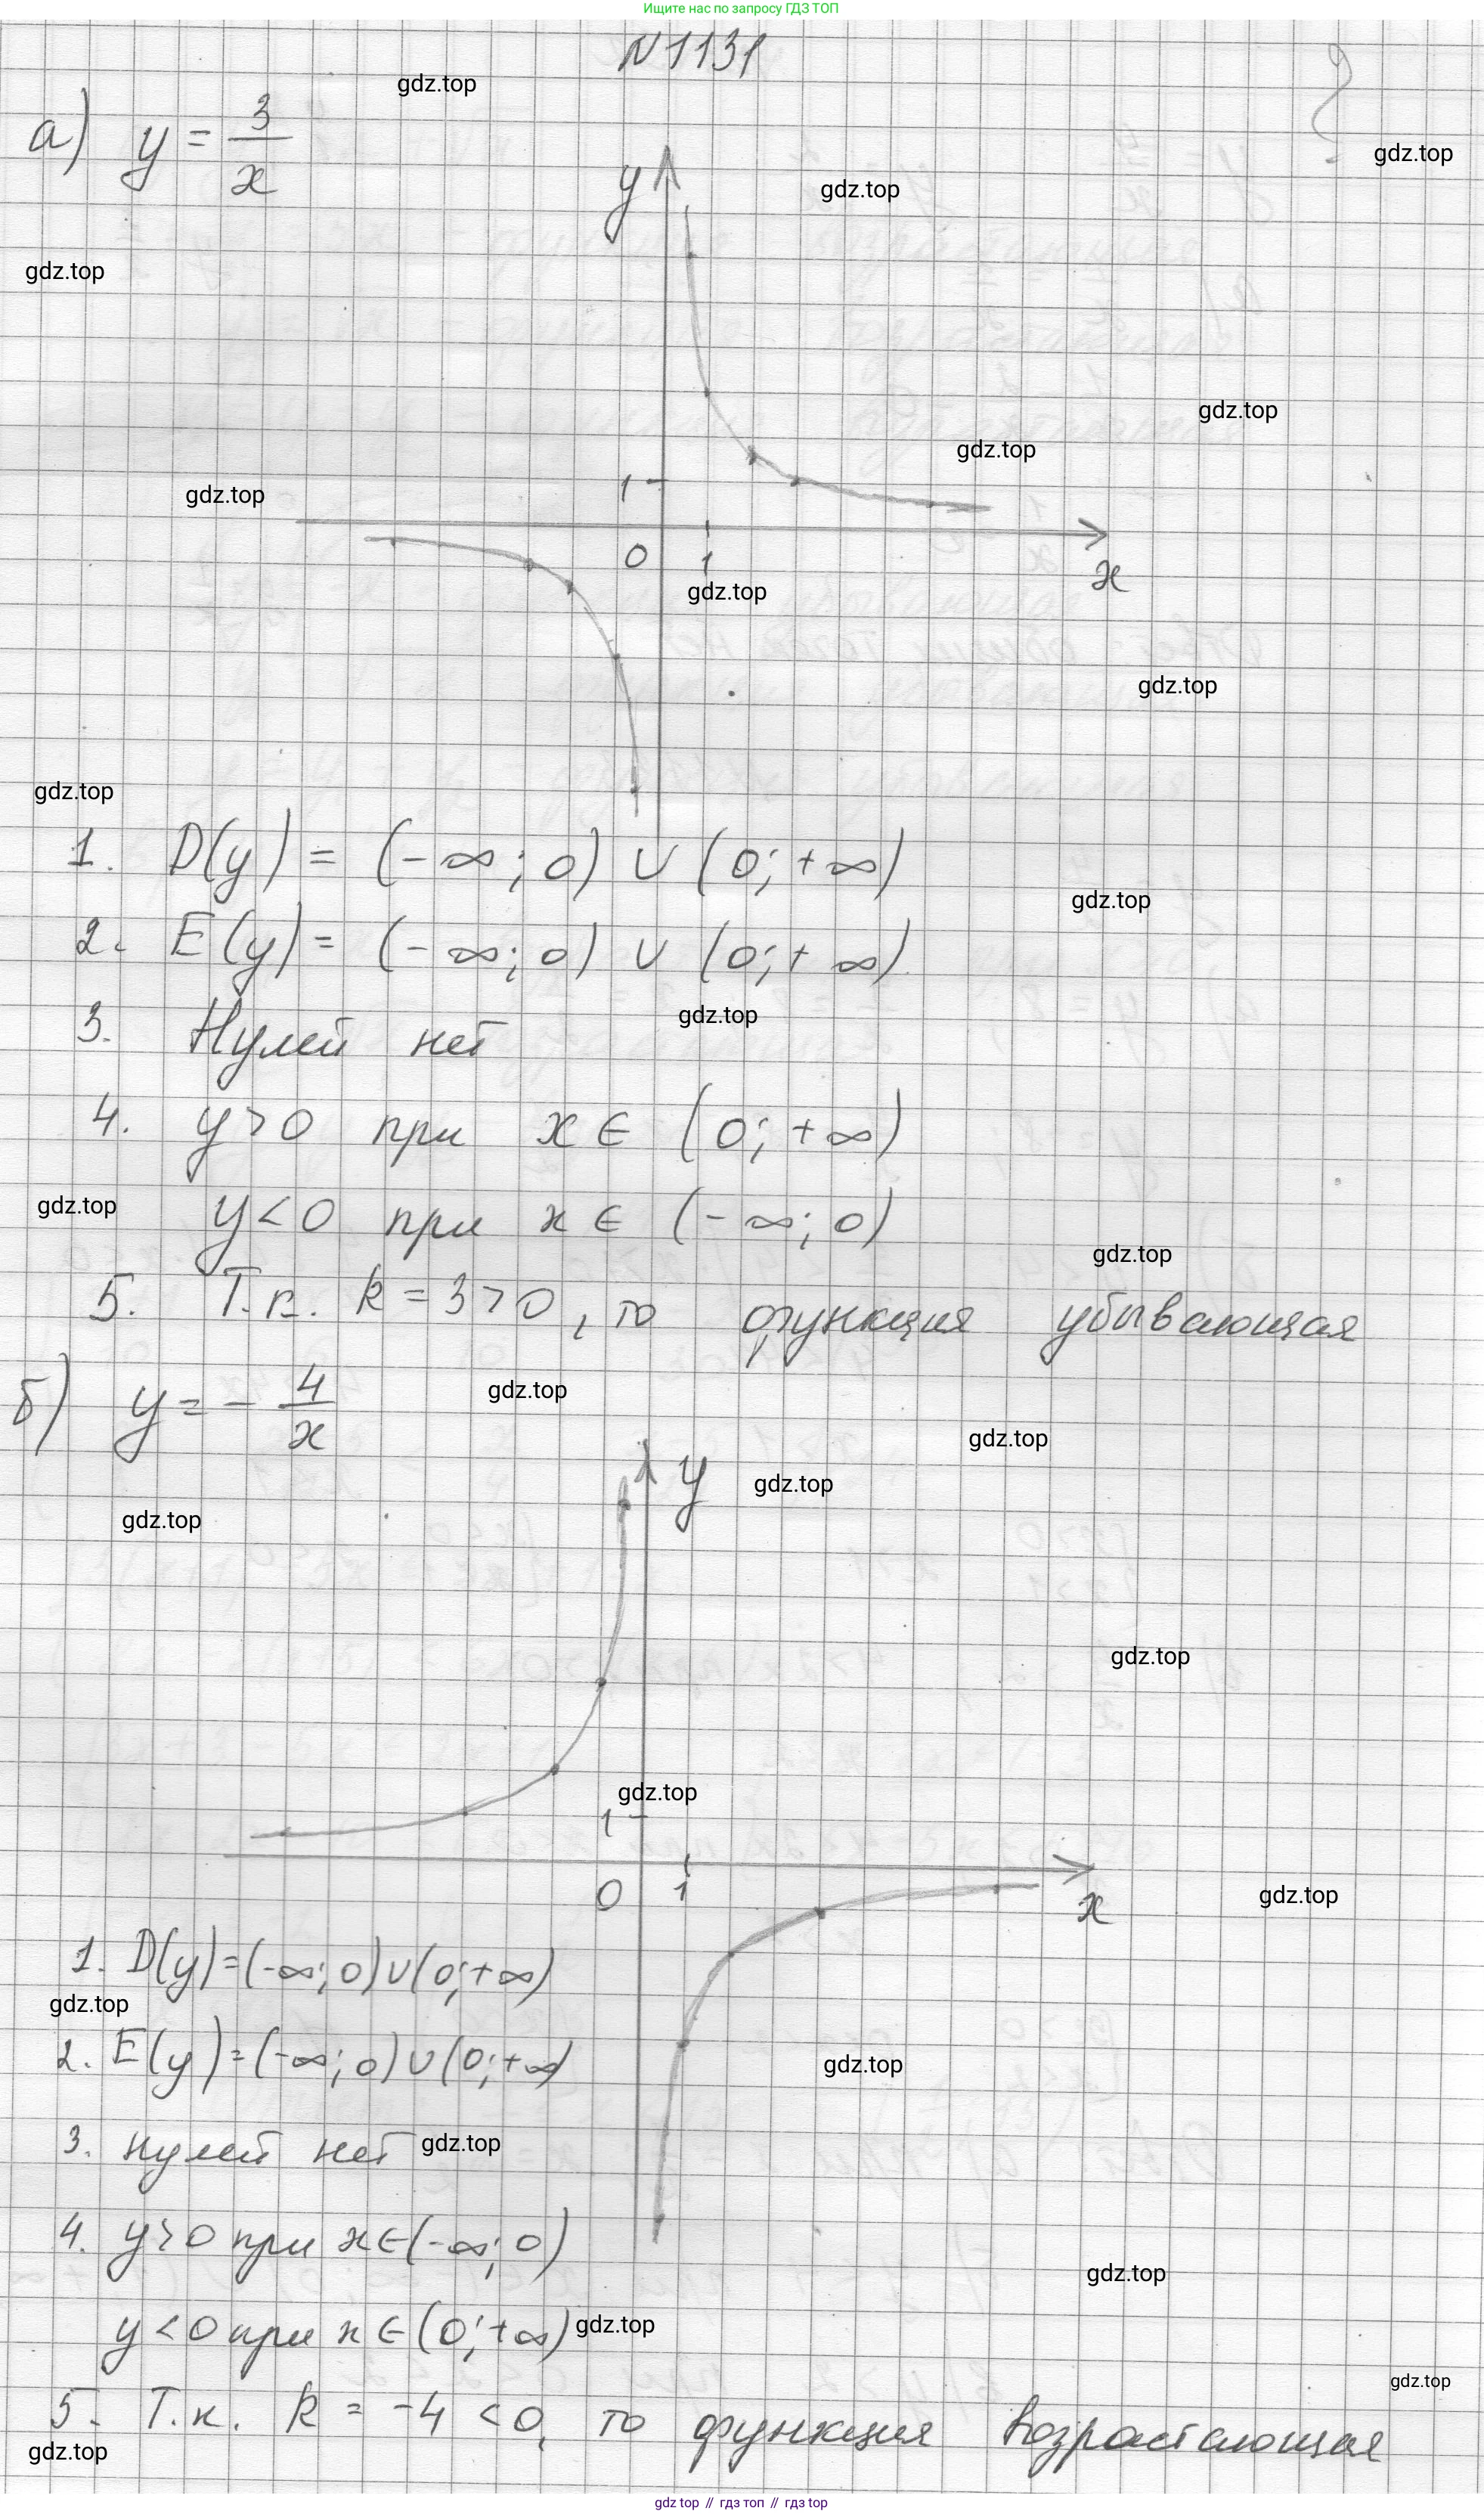 Ищите нас по запросу ГДЗ ТОП
N1131
gdz.top
а) y = 3/x
gdz.top
y
gdz.top
gdz.top
gdz.top
gdz.top
gdz.top
1
0
1
x
gdz.top
gdz.top
gdz.top
1. D(y) = (-∞; 0) ∪ (0; +∞)
gdz.top
2. E(y) = (-∞; 0) ∪ (0; +∞)
gdz.top
3. Нулей нет
4. y>0 при x ∈ (0; +∞)
gdz.top
y<0 при x ∈ (-∞; 0)
gdz.top
5. Т.к. k = 3>0, то функция убывающая
б) y = - 4/x
gdz.top
gdz.top
y
gdz.top
gdz.top
gdz.top
gdz.top
1
0
1
x
gdz.top
1. D(y)=(-∞; 0)∪(0;+∞)
gdz.top
2. E(y)=(-∞; 0)∪(0;+∞)
gdz.top
3. нулей нет
gdz.top
4. y>0 при x∈(-∞; 0)
gdz.top
y<0 при x∈(0;+∞)
gdz.top
gdz.top
5. Т.к. k = -4 <0, то функция возрастающая
gdz.top
gdz top // гдз топ // гдз top